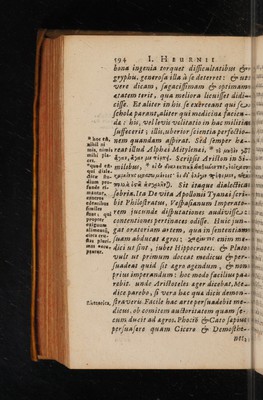 594 I. HEURNII
bona ingenia torquet difficultatibus &
gryphis. generosa illa à se deterret: & ut
vere dicam, sagacissimam & optimam
ætatem terit, qua meliora licuisset didi-
cisse. Et aliter in his se exerceant qui ex
schola parant, aliter qui medicina facien-
da: his, vel levis velitatio in hac militia
suffecerit; illis, uberior scientia perfectio-
nem quandam aspirat. Sed semper hæ-
reat illud Alphei Mitylenei,
Scripsit Ariston in Si-
milibus,
Sit itaque dialectica
sobria. Ita De vita Apollonii Tyanæi scri-
bit Philostratus, Vespasianum Imperato-
rem jucunde disputationes audivisse:
contentiones pertinaces odisse. Huic jun-
gat oratoriam artem, qua in sententiam
suam abducat ægros; enim me-
dici ut sint, jubet Hippocrates. & Plato
vult ut primum doceat medicus & per-
suadeat quid sit agro agendum, & non
prius imperandum: hoc modo facilius pa-
rebit. unde Aristoteles æger dicebat, Me-
dice parebo, si vera hæc qua dicis demon-
straveris. Facile hac arte persuadebit me-
dicus, ob comitem auctoritatem quam se-
cum ducit ad ægros. Phocis & Cato sæpius
persuasere quam Cicero & Demosthe-
nes,
* hoc est,
nihil ni-
mis, nimis
mihi pla-
cet.
* quod ii
qui diale-
ctice stu-
dium pro-
funde ri-
mantur,
cancros
edentibus
similes
sunt; qui
propter
exiguum
alimenti,
circa cru-
stas pluri-
mum occu-
pantur.
Rhetorica.